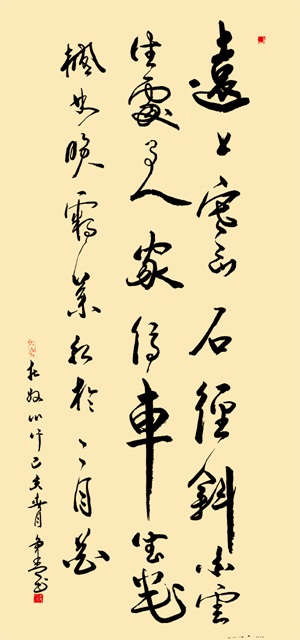 遠上寒山石徑斜白雲
生處有人家停車坐愛
楓林晚霜葉紅於二月花
杜牧山行己亥春月